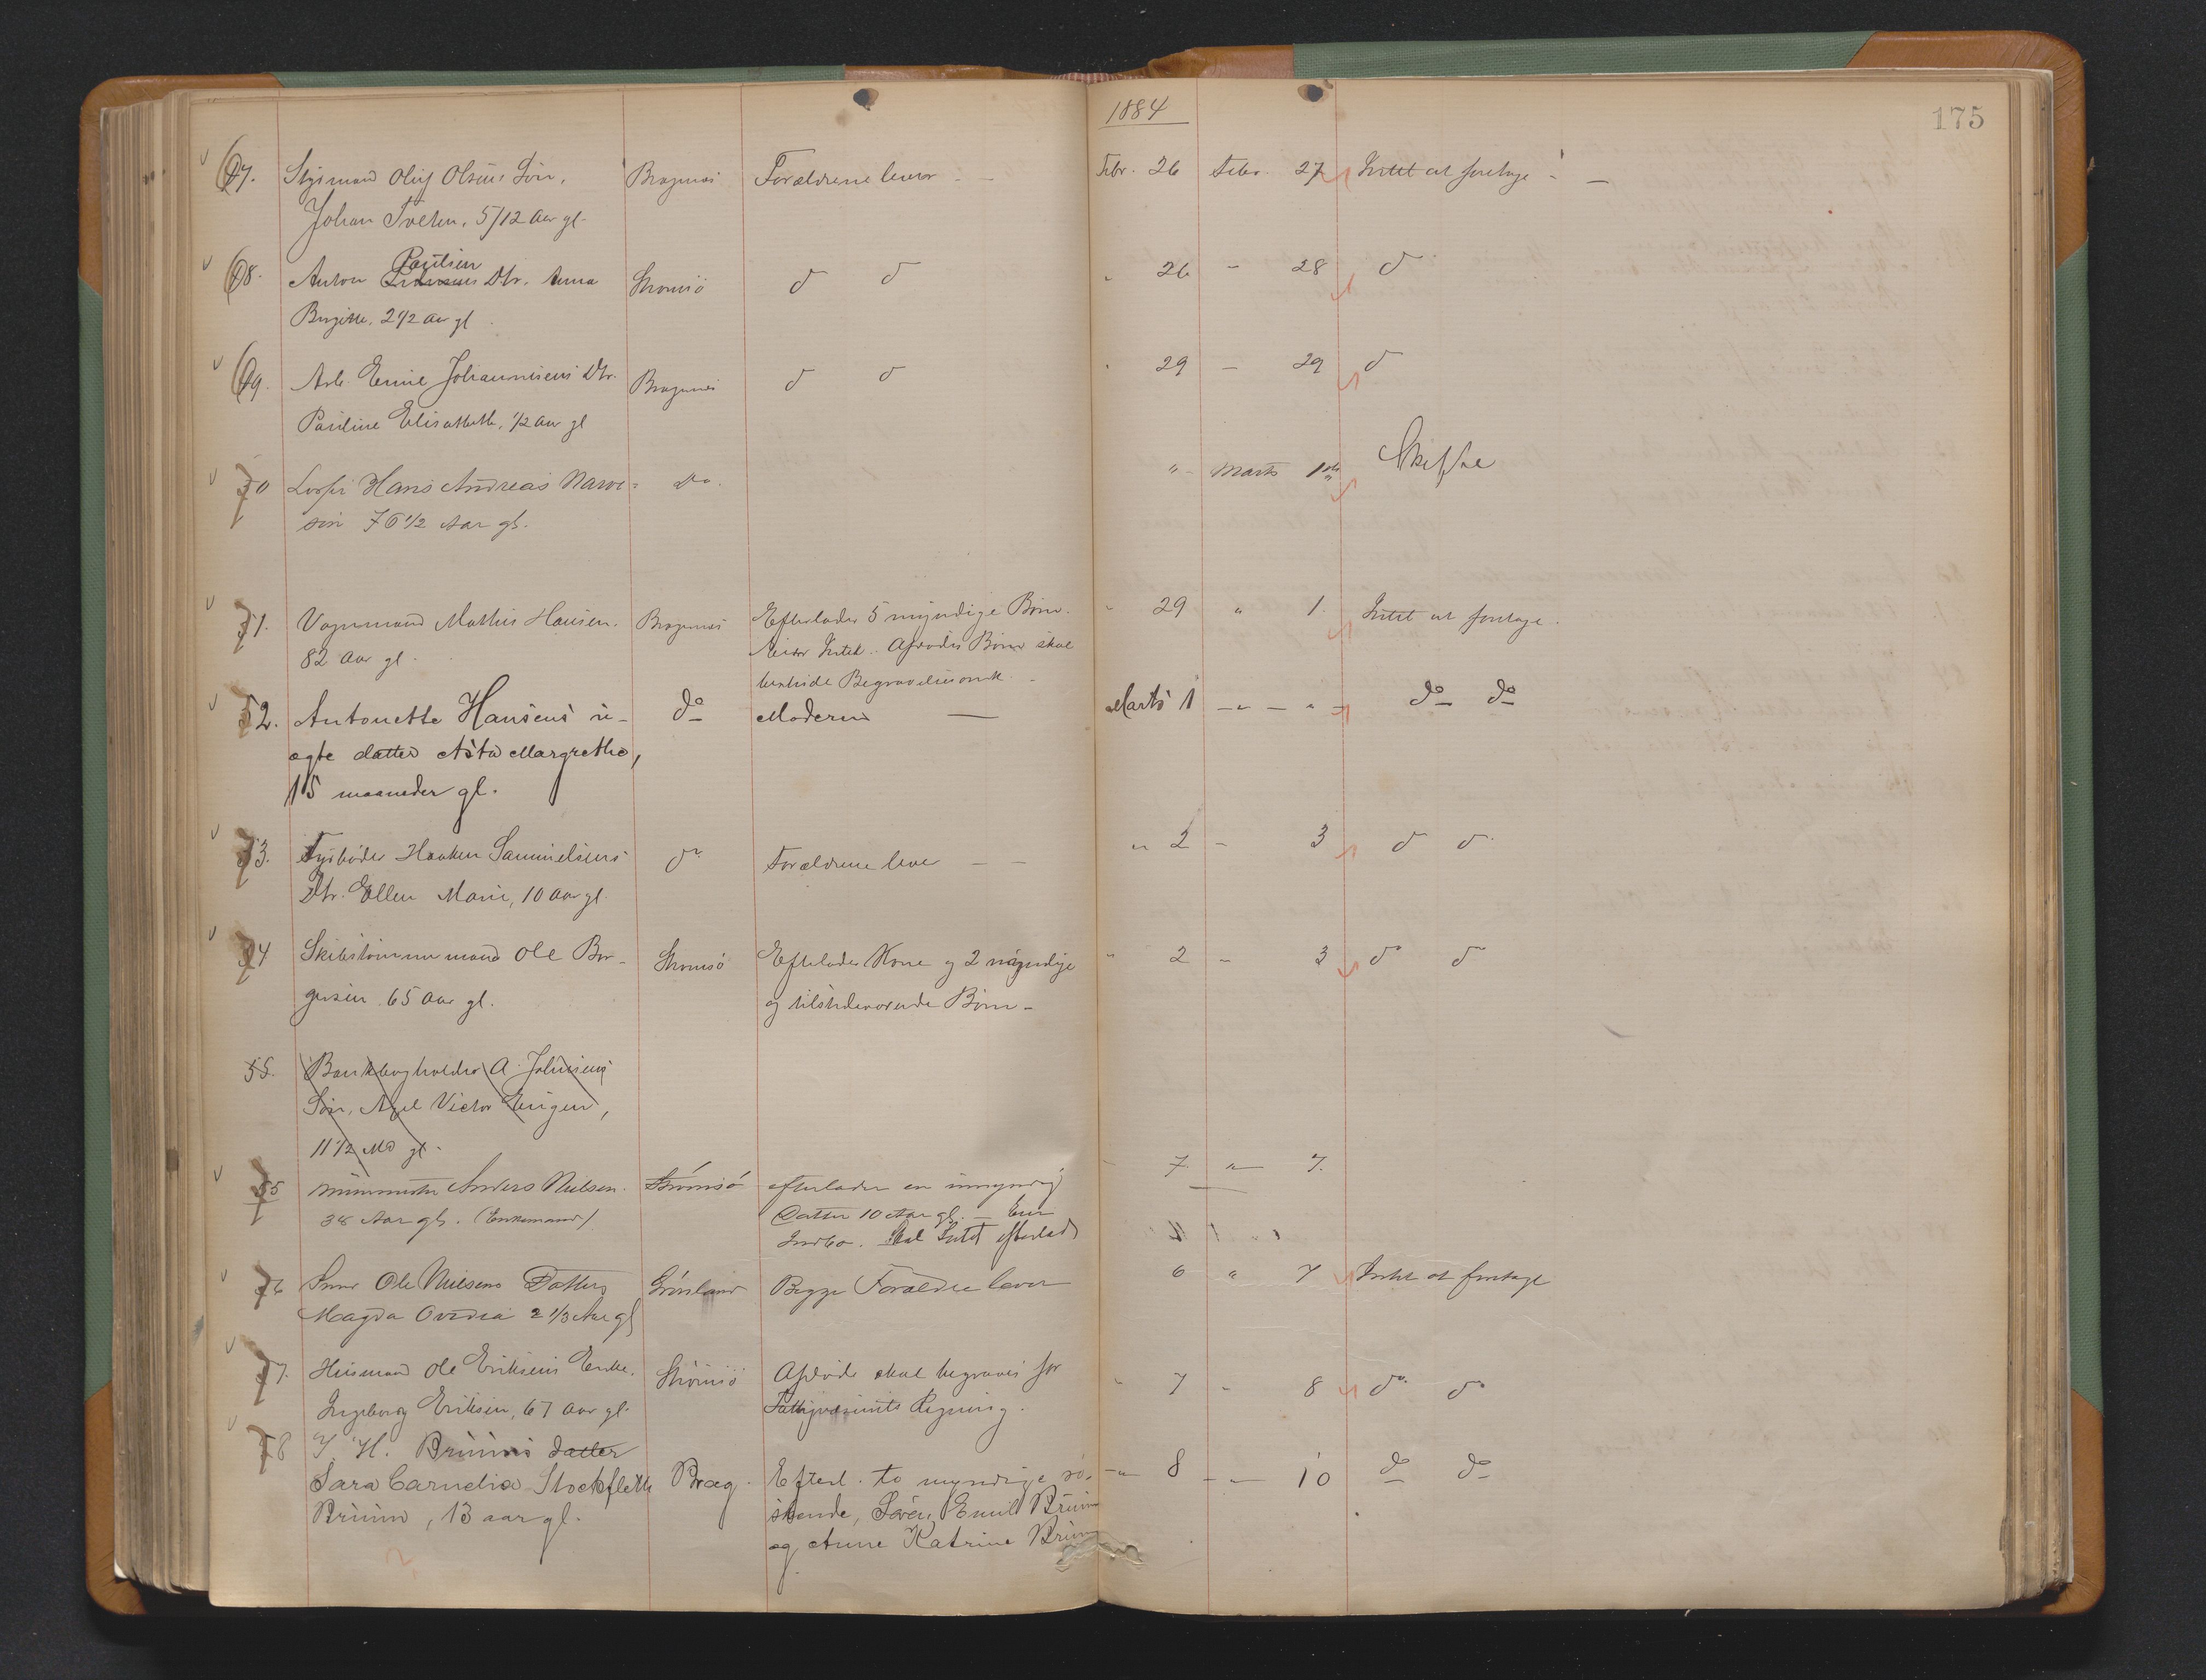 1884
175
47. Olsens Søn, Bragernes Forældrene lever — Febr. 26 Febr. 27 Intet at foretage —
Johan Tveten, 5/12 Aar gl.
Paulsen
48. Anton Dtr. Anna Strømsø d d " 26 - 28 d
Birgitte, 2 1/2 Aar gl.
49. Arb. Emil Johannesens Dtr. Bragernes d d " 29 - 29 d
Pauline Elisabeth, 1/2 Aar gl
50 Hans Andreas Narve= Do. " Marts 1ste Skifte
sen 76 1/2 Aar gl.
51. Vognmand Mathis Hansen. Bragernes Efterlader 5 myndige Børn. " 29 " 1. Intet at foretage.
82 Aar gl. Intet. Afdødes Børn skal
Begravelsen
52. Antonette Hansens u- do Moderen — Marts 1 - " - " - do do
ægte datter Asta Margrethe,
15 maaneder gl.
53. Haaken Samuelsens do Forældrene lever — — " 2 - 3 d d
Dtr. Ellen Marie, 10 Aar gl.
54 Skibstømmermand Ole Bor- Strømsø Efterlader Kone og 2 myndige " 2 " 3 d d
gersen. 65 Aar gl. og tilstedeværende Børn -
55. Bankbogholder A. Johnsens
Søn, Axel Victor Eugen,
11 1/2 Md gl.
55 Anders Nielsen. Strømsø efterlader en umyndig - 7. " 7.
38 Aar gl. (Enkemand) Datter 10 Aar gl. —
Indbo. Skal Intet efterlade
56 Ole Nielsens Datter Grønland Begge Forældre lever 6 " 7 Intet at foretage
Magda Ovidia 2 1/3 Aar gl
57. Husmand Ole Eriksens Enke. Strømsø Afdøde skal begraves for " 7 " 8 do do
Ingeborg Eriksen, 67 Aar gl. Fattigvæsenets Regning.
58 J. H. Bruuns datter
Sara Carnelia Stockfleth Brag. Efterl. to myndige sø- -"- 8 -"- 10 do do
Bruun, 13 aar gl. skende, Søren Emil Bruun
og Anne Katrine Bruun